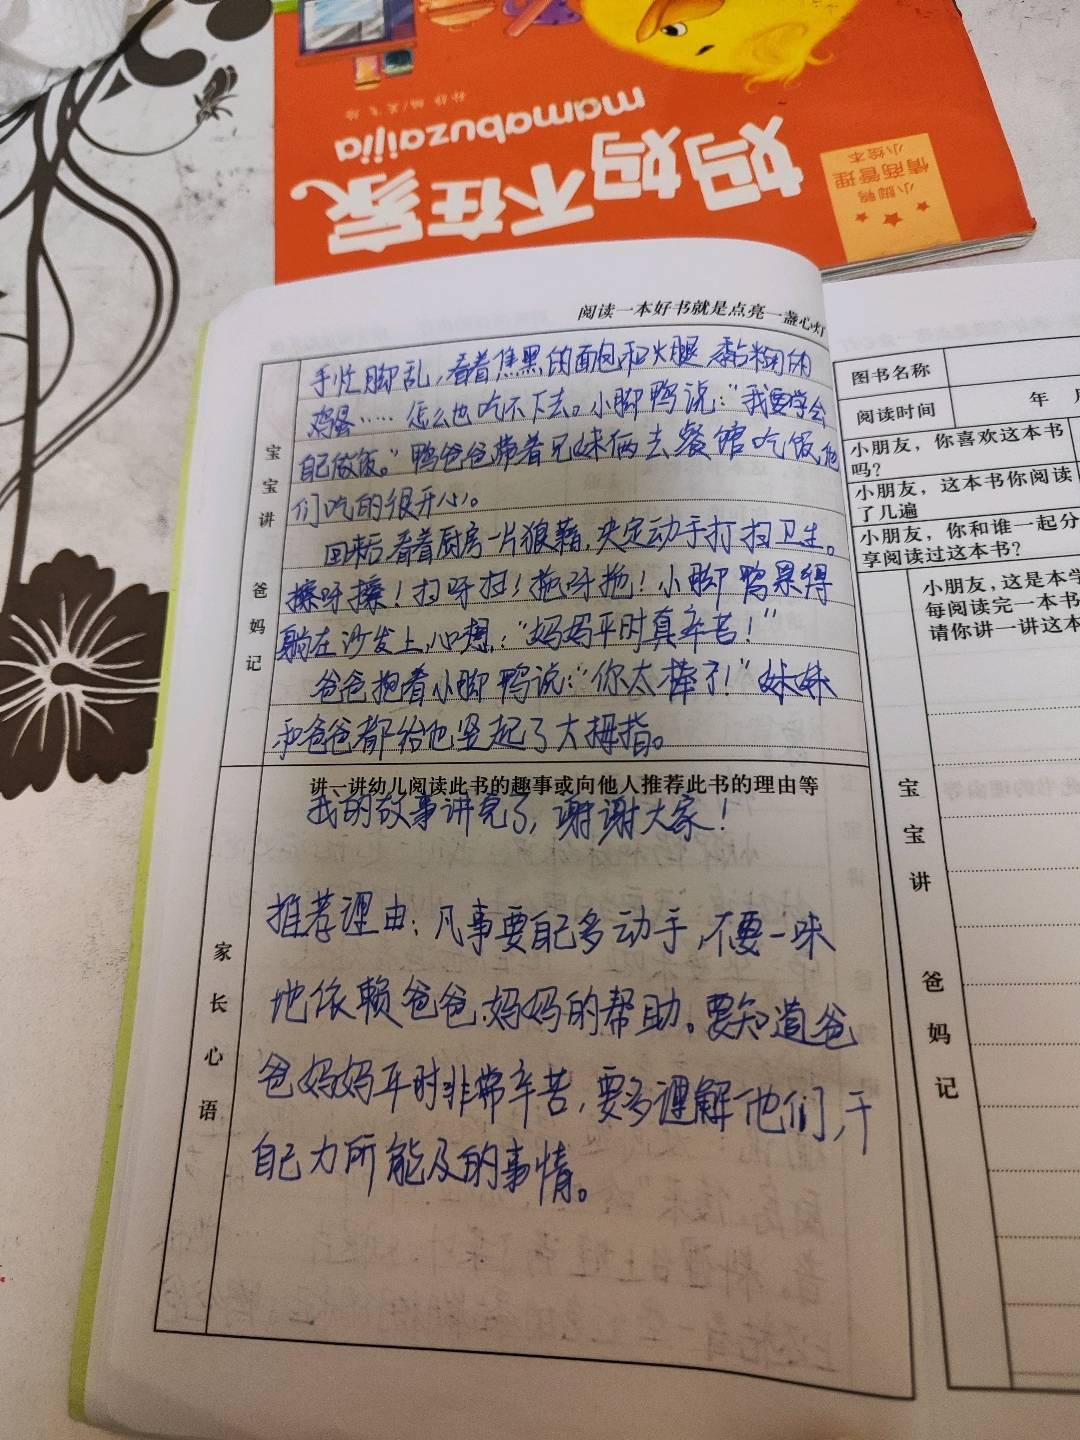 妈妈不在家
mamabuzaijia
小脚鸭
情商管理
小绘本
阅读一本好书就是点亮一盏心灯
宝宝讲 爸妈记
手忙脚乱，看着焦黑的面包和火腿 黏糊的
鸡蛋……怎么也吃不下去。小脚鸭说：“我要学会
自己做饭。”鸭爸爸带着兄妹俩去餐馆吃饭，他
们吃的很开心。
回来后，看着厨房一片狼藉，决定动手打扫卫生。
擦呀擦！扫呀扫！拖呀拖！小脚鸭累得
躺在沙发上，心想：“妈妈平时真辛苦！”
爸爸抱着小脚鸭说：“你太棒了！”妹妹
和爸爸都给他竖起了大拇指。
家长心语
讲一讲幼儿阅读此书的趣事或向他人推荐此书的理由等
我的故事讲完了，谢谢大家！
推荐理由：凡事要自己多动手，不要一味
地依赖爸爸、妈妈的帮助。要知道爸
爸妈妈平时非常辛苦，要多理解他们，干
自己力所能及的事情。
图书名称
阅读时间 年
小朋友，你喜欢这本书
吗？
小朋友，这本书你阅读
了几遍
小朋友，你和谁一起分
享阅读过这本书？
小朋友，这是本学
每阅读完一本书
请你讲一讲这本
宝宝讲 爸妈记